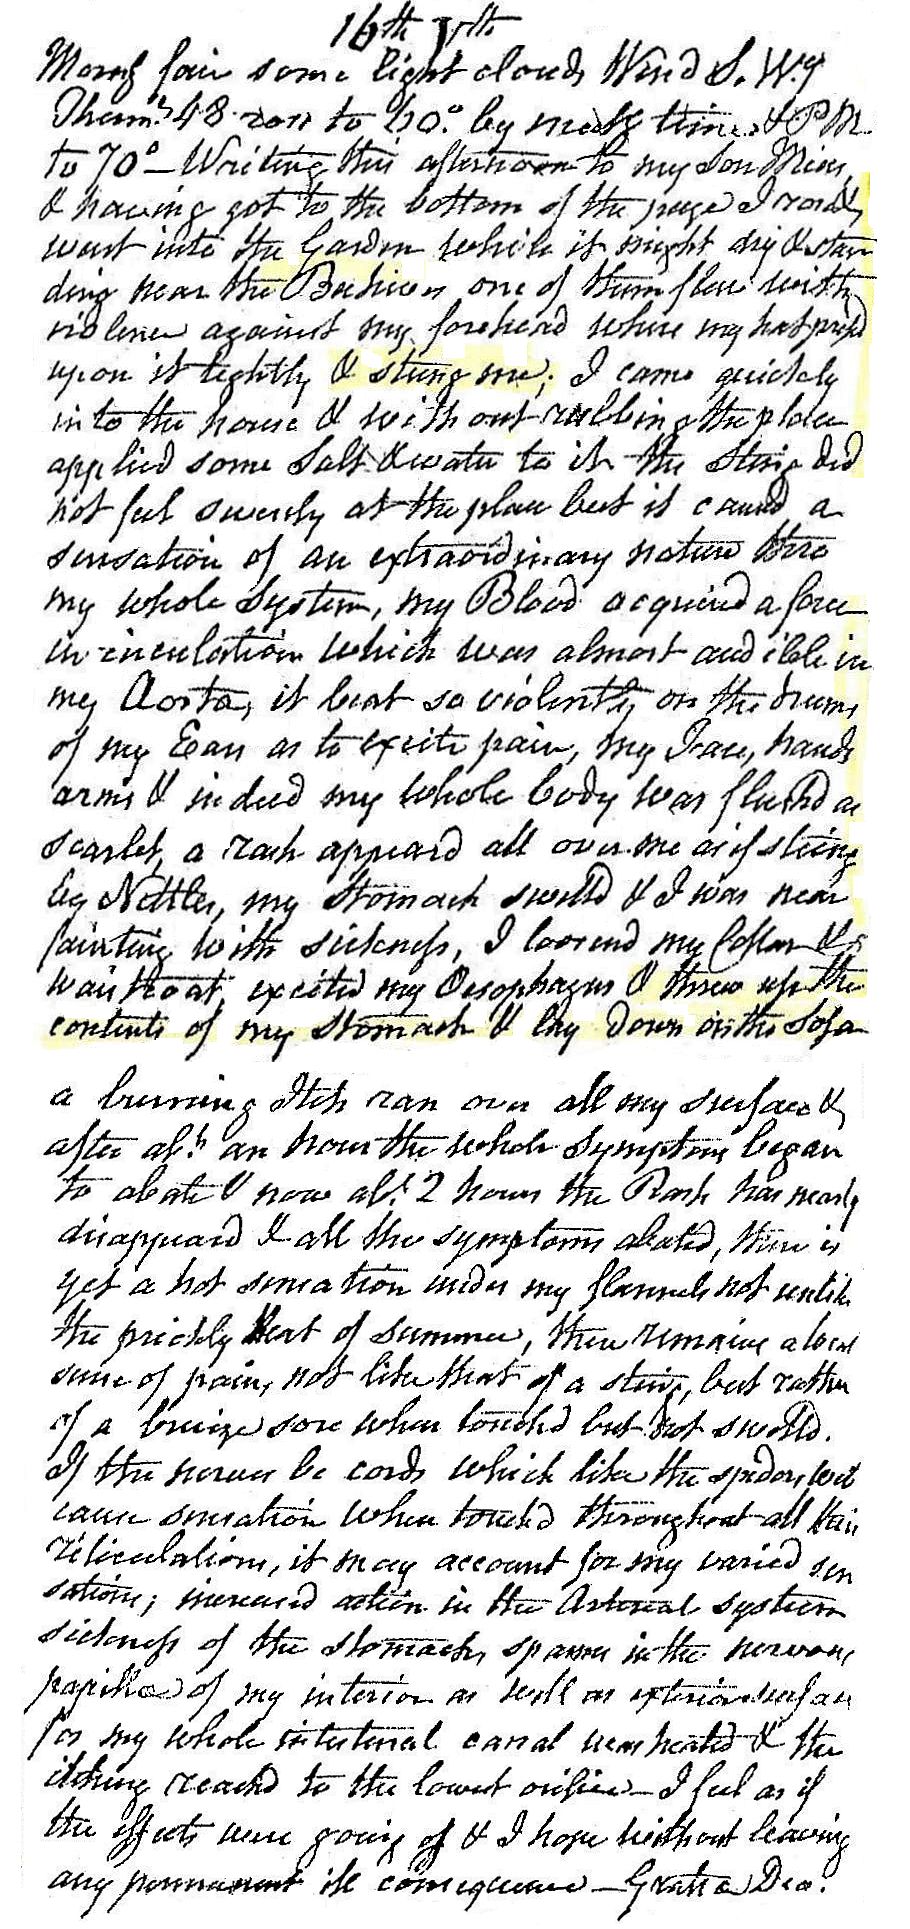 16th 7th
Morng fair some light clouds Wind S. Wy
Thermr 48 ran to 60° by meetg time & P M
to 70° — Writing this afternoon to my Son
& having got to the bottom of the page I
went into the Garden while it might dry & stan
ding near the Beehives one of them flew with
violence against my forehead where my hat press'd
upon it tightly & stung me; I came quickly
into the house & without rubbing the place
applied some Salt & water to it the Sting did
not feel severely at the place but it caused a
sensation of an extraordinary nature thro
my whole System, my Blood acquired a force
in circulation which was almost audible in
my Aorta, it beat so violently on the drums
of my Ears as to excite pain, my Face, hands
arms & indeed my whole body was flushd as
scarlet, a rash appeard all over me as if stung
by Nettles, my Stomach swelld & I was near
fainting with sickness, I loosend my Collar &
waistcoat, excited my Oesophagus & threw up the
contents of my Stomach & lay down on the Sofa
a burning Itch ran over all my surface &
after abt an hour the whole Symptoms began
to abate & now abt 2 hours the Rash has nearly
disappeard & all the symptoms abated, there is
yet a hot sensation under my flannels not unlike
the prickly Heat of summer, there remains a local
sense of pain, not like that of a sting, but rather
of a bruize sore when touchd but not swelld.
If the nerves be cords which like the spiders web
cause sensation when touchd throughout all their
reticulations, it may account for my varied sen
sations; increased action in the Arterial system
sickness of the stomach, spasms in the nervous
papillae of my interior as well as exterior surface
for my whole intestinal canal was heated & the
itching reachd to the lowest orifice — I feel as if
the effects were going off & I hope without leaving
any permanent ill consequence — Gratia Deo.